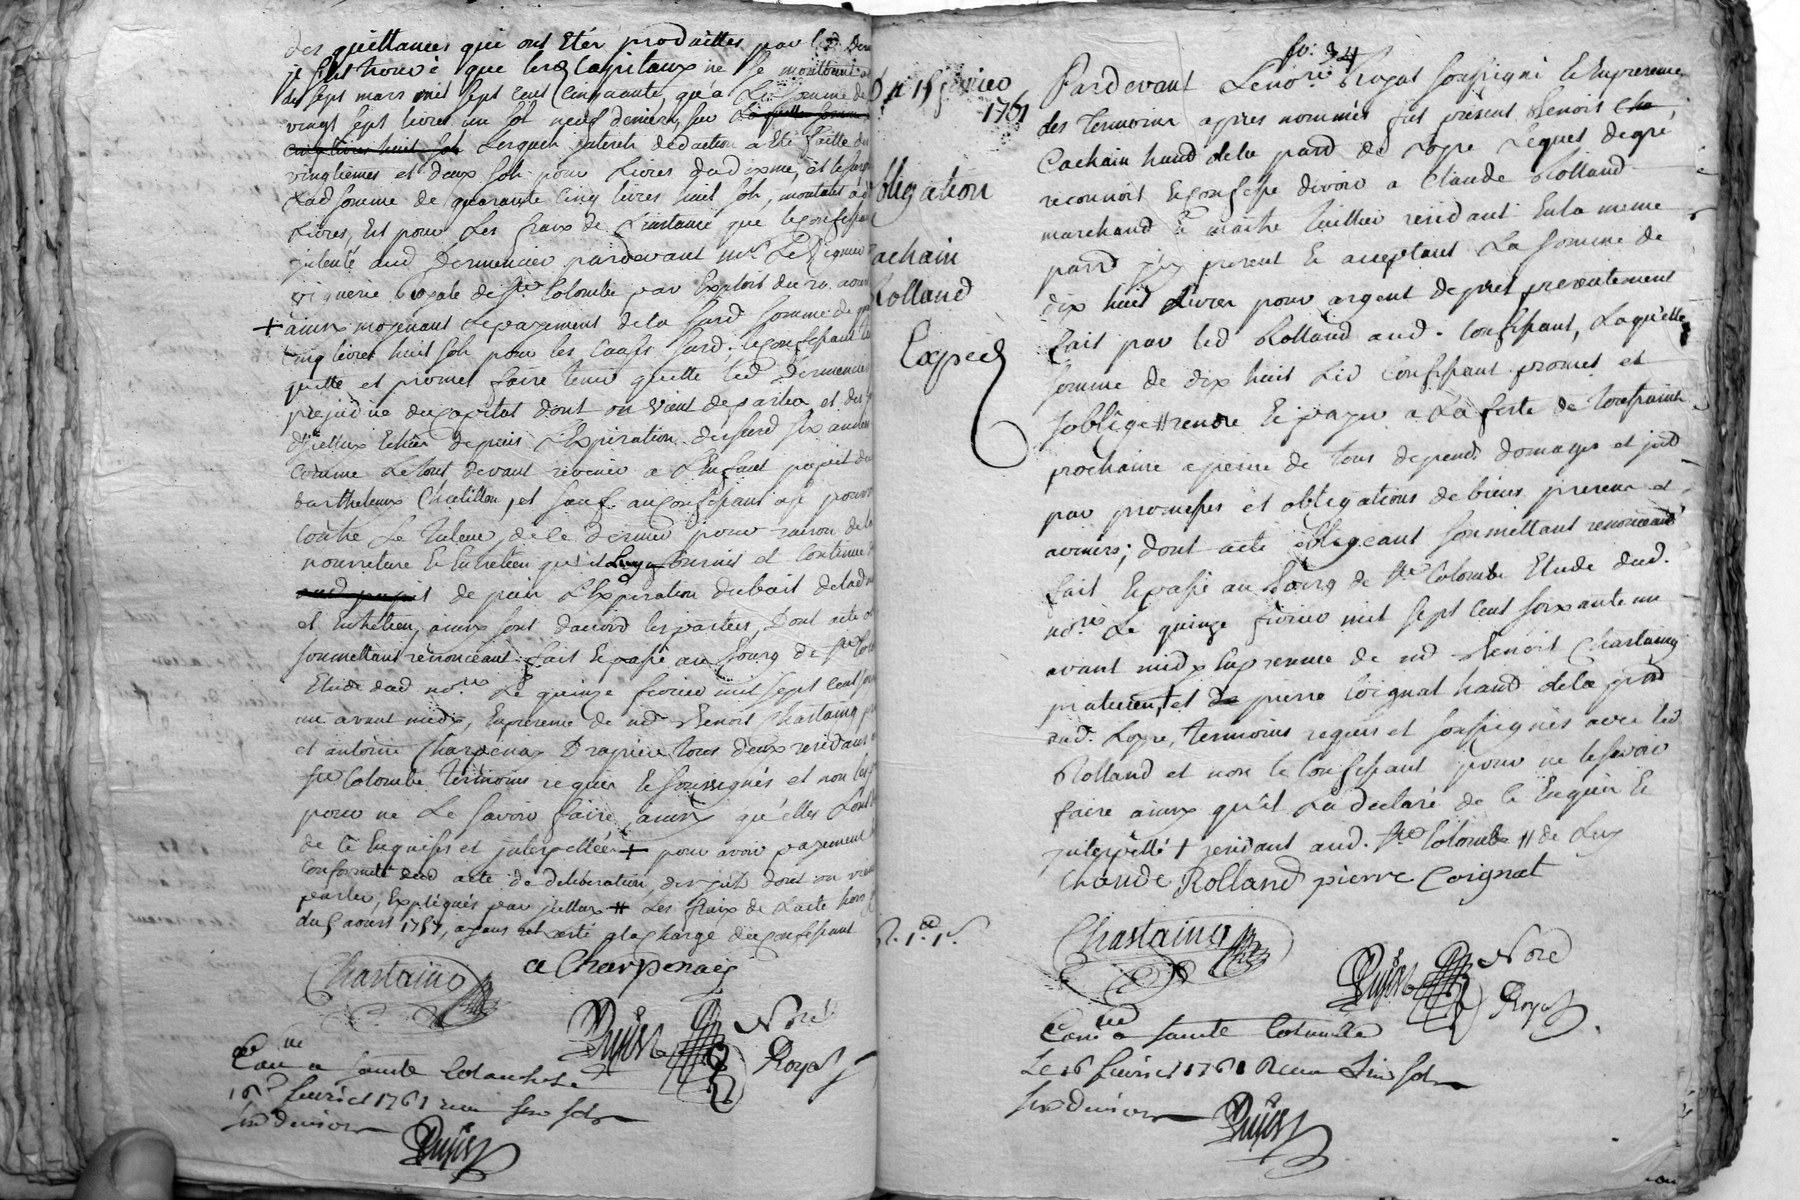 des quittances qui ont Eter produittes par led
je fut trouvé que les Capitaux ne se montoient
des sept mars mil sept cent Cinquante, qu'a La somme de
vingt sept livres un sol neuf deniers, sur
Lesquels jnterets deduction a Eté faitte
vingtiemes et deux sols pour Livres du dixme, et
Lad somme de quarante Cinq livres huit sols, montant
Livres, Et pour Les fraix de L'instance que le confessant
jntenté aud Dermencier pardevant
viguerie Royale de Ste Colombe par Exploit du 20
+ ainsy moyenant Le payement de la susd somme de
Cinq livres huit sols pour les Causes susd. le confessant
quitte et promet faire tenir quitte led Dermencier
prejudice du capital dont on vient de parler et des
d'jcelluy Echeu depuis L'Expiration desusd six années
Comme Le tout devant revenir a L'Enfant
Barthelemy Chatillon, et sauf au confessant a se pourvoir
Contre Le Tuteur de ce dernier pour raison de la
nourriture Et Entretien qu'il Luy a fourni et Continue
depuis L'Expiration du bail de lad
et Entretien, ainsy sont d'accord les parties, Dont acte
soumettant renonceant. fait Et passé au Bourg de Ste
Etude dud nore. Le quinze fevrier mil sept cent
un avant midy, En presence de md Benoit Chastaing
et antoine Charpenay Drapier tous deux residans
Ste Colombe temoins requis Et soussignés et non les
pour ne Le savoir faire ainsy qu'elles L'ont
de ce Enquises et jnterpellées + pour avoir payement
Conformement aud acte de deliberation, des jnts dont on vient
parler, Expliqués par jcelluy # Les fraix de L'acte
du 5 aoust 1757, ayans resté a la Charge du confessant
Chastaing
a Charpenay
Nore
Royal
Conllé a Sainte Colombe le
16e fevrier 1761 reçu six sols
six deniers
fo: 34
Du 15 fevrier
1761
obligation
Cachain
Rolland
Exped
Pardevant Le nore Royal soussigné Et En presence
des temoins apres nommés fut présent Benoit
Cachain hand de la parr de Loyre Lequel de gré
reconnoit Et confesse devoir a Claude Rolland
marchand Et maitre tailleur residant En la meme
parr jcy present Et acceptant La somme de
dix huit Livres pour argent de pret presentement
fait par led Rolland aud. Confessant, Laquelle
somme de dix huit Liv Confessant promet et
s'oblige # rendre Et payer a La feste de Toussaint
prochaine a peine de tous depends domages et jnts
par promesses et obligations de biens presens et
avenirs; dont acte obligeant soumettant renonceant
fait Et passé au Bourg de Ste Colombe Etude dud.
nore. Le quinze fevrier mil sept cent soixante un
avant midy En presence de md Benoit Chastaing
praticien + et de pierre Coignat hand de la parr
dud. Loyre, temoins requis et soussignés avec led
Rolland et non le Confessant pour ne le savoir
faire ainsy qu'il L'a declaré de ce Enquis Et
jnterpellé + residant aud. Ste Colombe # de Luy
Claude Rolland pierre Coignat
Chastaing
Nore
Royal
Conllé a Sainte Colombe
Le 16 fevrier 1761 Reçu six sols
six deniers